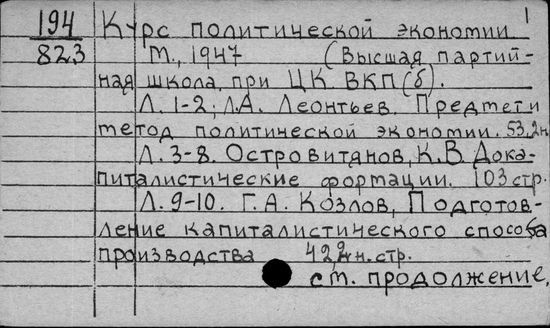 194 Курс политической экономии 1
823 М., 1947 (Высшая партий-
ная школа при ЦК ВКП(б).
Л. 1-2; Л.А. Леонтьев. Предмет и
метод политической экономии. 53,2н.
Л. 3-8. Островитянов, К.В. Дока-
питалистические формации. 103 стр.
Л. 9-10. Г.А. Козлов, Подготов-
ление капиталистического способа
производства 42,2н.стр.
см. продолжение.